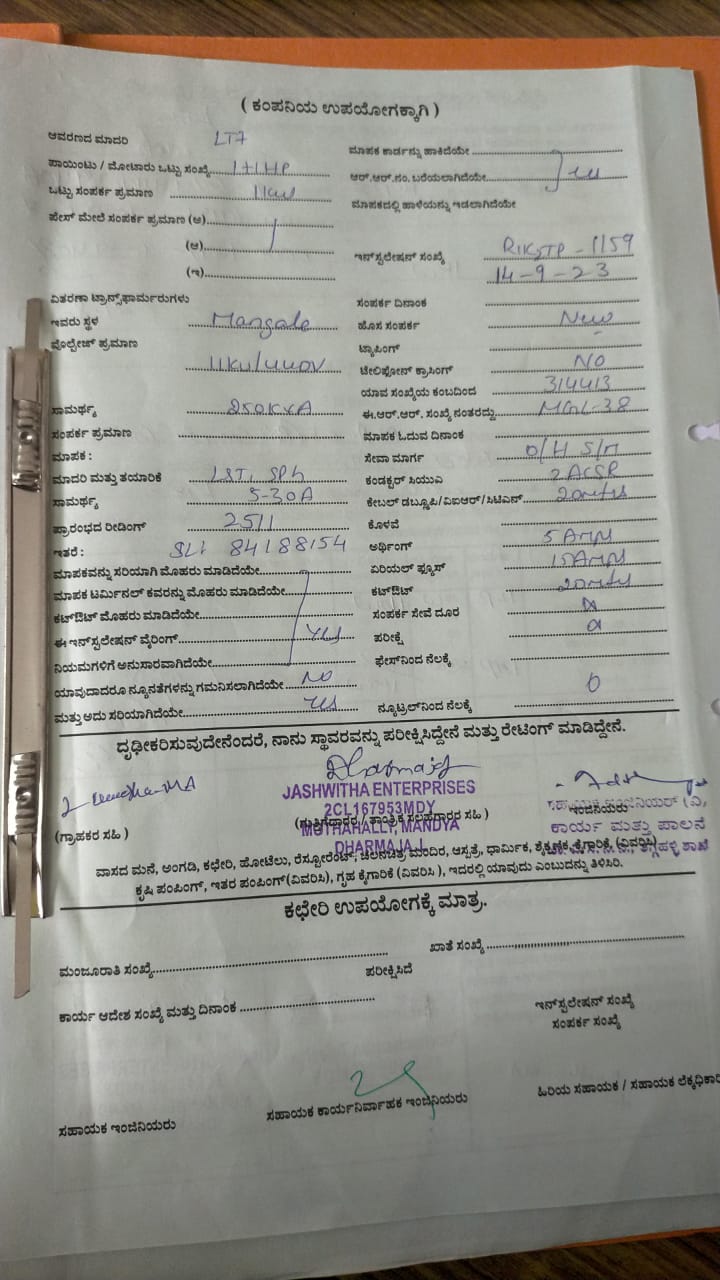 ( ಕಂಪನಿಯ ಉಪಯೋಗಕ್ಕಾಗಿ )
ಆವರಣದ ಮಾದರಿ LT7
ಪಾಯಿಂಟು / ಮೋಟಾರು ಒಟ್ಟು ಸಂಖ್ಯೆ 1+1HP
ಒಟ್ಟು ಸಂಪರ್ಕ ಪ್ರಮಾಣ 1kw
ಫೇಸ್ ಮೇಲೆ ಸಂಪರ್ಕ ಪ್ರಮಾಣ (ಅ)
(ಆ)
(ಇ)
ವಿತರಣಾ ಟ್ರಾನ್ಸ್‌ಫಾರ್ಮರುಗಳು
ಇವರು ಸ್ಥಳ Mangala
ವೊಲ್ಟೇಜ್ ಪ್ರಮಾಣ
11kv/440V
ಸಾಮರ್ಥ್ಯ 250KVA
ಸಂಪರ್ಕ ಪ್ರಮಾಣ
ಮಾಪಕ :
ಮಾದರಿ ಮತ್ತು ತಯಾರಿಕೆ L&T, SPh
ಸಾಮರ್ಥ್ಯ 5-30A
ಪ್ರಾರಂಭದ ರೀಡಿಂಗ್ 2511
ಇತರೆ : SL: 84188154
ಮಾಪಕವನ್ನು ಸರಿಯಾಗಿ ಮೊಹರು ಮಾಡಿದೆಯೇ
ಮಾಪಕ ಟರ್ಮಿನಲ್ ಕವರನ್ನು ಮೊಹರು ಮಾಡಿದೆಯೇ
ಕಟ್‌ಔಟ್ ಮೊಹರು ಮಾಡಿದೆಯೇ
ಈ ಇನ್‌ಸ್ಟಲೇಷನ್ ವೈರಿಂಗ್ Yes
ನಿಯಮಗಳಿಗೆ ಅನುಸಾರವಾಗಿದೆಯೇ
ಯಾವುದಾದರೂ ನ್ಯೂನತೆಗಳನ್ನು ಗಮನಿಸಲಾಗಿದೆಯೇ NO
ಮತ್ತು ಅದು ಸರಿಯಾಗಿದೆಯೇ Yes
ಮಾಪಕ ಕಾರ್ಡನ್ನು ಹಾಕಿದೆಯೇ
ಆರ್.ಆರ್.ನಂ. ಬರೆಯಲಾಗಿದೆಯೇ
ಮಾಪಕದಲ್ಲಿ ಹಾಳೆಯನ್ನು ಇಡಲಾಗಿದೆಯೇ
ಇನ್‌ಸ್ಟಲೇಷನ್ ಸಂಖ್ಯೆ RIKSTP-1159
14-9-23
ಸಂಪರ್ಕ ದಿನಾಂಕ
ಹೊಸ ಸಂಪರ್ಕ New
ಟ್ಯಾಪಿಂಗ್
ಟೇಲಿಫೋನ್ ಕ್ರಾಸಿಂಗ್ NO
ಯಾವ ಸಂಖ್ಯೆಯ ಕಂಬದಿಂದ 3/4413
ಈ.ಆರ್.ಆರ್. ಸಂಖ್ಯೆ ನಂತರದ್ದು MGL-38
ಮಾಪಕ ಓದುವ ದಿನಾಂಕ
ಸೇವಾ ಮಾರ್ಗ O/H S/M
ಕಂಡಕ್ಟರ್ ಸಿಯುವಿ 2 ACSR
ಕೇಬಲ್ ಡಬ್ಲ್ಯೂಪಿ/ವಿಐಆರ್/ಸಿಟಿಎಸ್ 20mtrs
ಕೊಳವೆ
ಅರ್ಥಿಂಗ್ 5 Amps
ಏರಿಯಲ್ ಫ್ಯೂಸ್ 15 Amps
ಕಟ್‌ಔಟ್ 20mtrs
ಸಂಪರ್ಕ ಸೇವೆ ದೂರ
ಪರೀಕ್ಷೆ
ಫೇಸ್‌ನಿಂದ ನೆಲಕ್ಕೆ
ನ್ಯೂಟ್ರಲ್‌ನಿಂದ ನೆಲಕ್ಕೆ 0
ದೃಢೀಕರಿಸುವುದೇನೆಂದರೆ, ನಾನು ಸ್ಥಾವರವನ್ನು ಪರೀಕ್ಷಿಸಿದ್ದೇನೆ ಮತ್ತು ರೇಟಿಂಗ್ ಮಾಡಿದ್ದೇನೆ.
JASHWITHA ENTERPRISES
2CL167953MDY
MUTHAHALLY, MANDYA
DHARMAJA.J
(ಗ್ರಾಹಕರ ಸಹಿ)
(ಗುತ್ತಿಗೆದಾರರ / ತಾಂತ್ರಿಕ ಸಲಹಗಾರರ ಸಹಿ)
ಇಂಜಿನಿಯರು
ಕಾರ್ಯ ಮತ್ತು ಪಾಲನೆ
ವಾಸದ ಮನೆ, ಅಂಗಡಿ, ಕಛೇರಿ, ಹೋಟೆಲು, ರೆಸ್ಟೋರೆಂಟ್, ಚಲನಚಿತ್ರ ಮಂದಿರ, ಆಸ್ಪತ್ರೆ, ಧಾರ್ಮಿಕ, ಶೈಕ್ಷಣಿಕ, ಕೈಗಾರಿಕೆ, (ವಿವರಿಸಿ)
ಕೃಷಿ ಪಂಪಿಂಗ್, ಇತರ ಪಂಪಿಂಗ್(ವಿವರಿಸಿ), ಗೃಹ ಕೈಗಾರಿಕೆ (ವಿವರಿಸಿ ), ಇದರಲ್ಲಿ ಯಾವುದು ಎಂಬುದನ್ನು ತಿಳಿಸಿರಿ.
ಕಛೇರಿ ಉಪಯೋಗಕ್ಕೆ ಮಾತ್ರ.
ಮಂಜೂರಾತಿ ಸಂಖ್ಯೆ
ಖಾತೆ ಸಂಖ್ಯೆ
ಪರೀಕ್ಷಿಸಿದೆ
ಕಾರ್ಯ ಆದೇಶ ಸಂಖ್ಯೆ ಮತ್ತು ದಿನಾಂಕ
ಇನ್‌ಸ್ಟಲೇಷನ್ ಸಂಖ್ಯೆ
ಸಂಪರ್ಕ ಸಂಖ್ಯೆ
ಸಹಾಯಕ ಇಂಜಿನಿಯರು
ಸಹಾಯಕ ಕಾರ್ಯನಿರ್ವಾಹಕ ಇಂಜಿನಿಯರು
ಹಿರಿಯ ಸಹಾಯಕ / ಸಹಾಯಕ ಲೆಕ್ಕಧಿಕಾರಿ